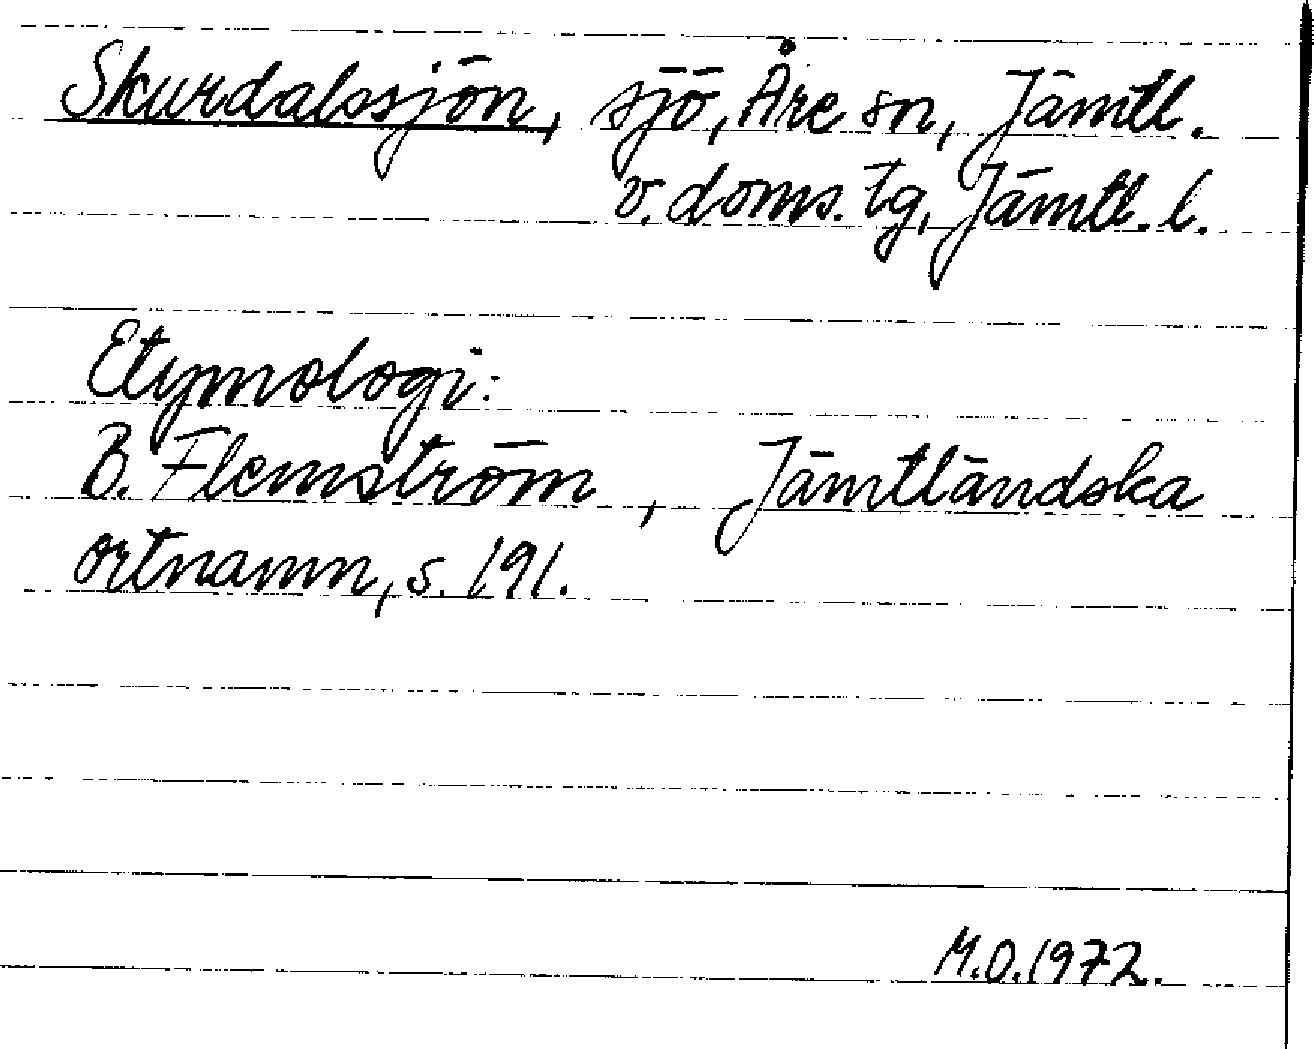 Skurdalssjön, sjö, Åre sn, Jämtl.
v. doms. tg, Jämtl. l.
Etymologi:
B. Flemström, Jämtländska
ortnamn, s. 191.
M.O. 1972.